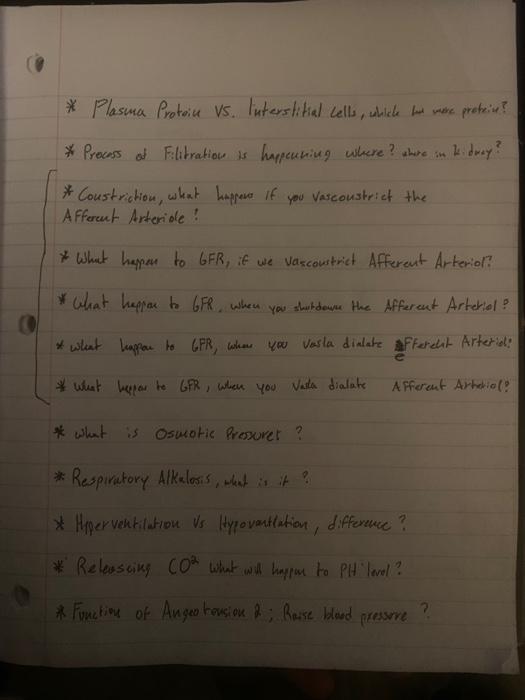 * Plasma Protein VS. Interstitial cells, which has more protein?
* Process of Filitration is happening where? where in kidney?
* Constriction, what happens if you vasconstrict the
Afferent Arteriole?
* What happen to GFR, if we vasconstrict Afferent Arteriol?
* What happen to GFR, when you shutdown the Afferent Arteriol?
* what happen to GFR, when you vasla dialate efferent Arteriol?
* what happen to GFR, when you vasla dialate Afferent Arteriol?
* what is Osmotic Pressures?
* Respiratory Alkalosis, what is it?
* Hyperventilation Vs Hypoventilation, difference?
* Releasing CO² what will happen to PH level?
* Function of Angeotension 2; Raise blood pressure?